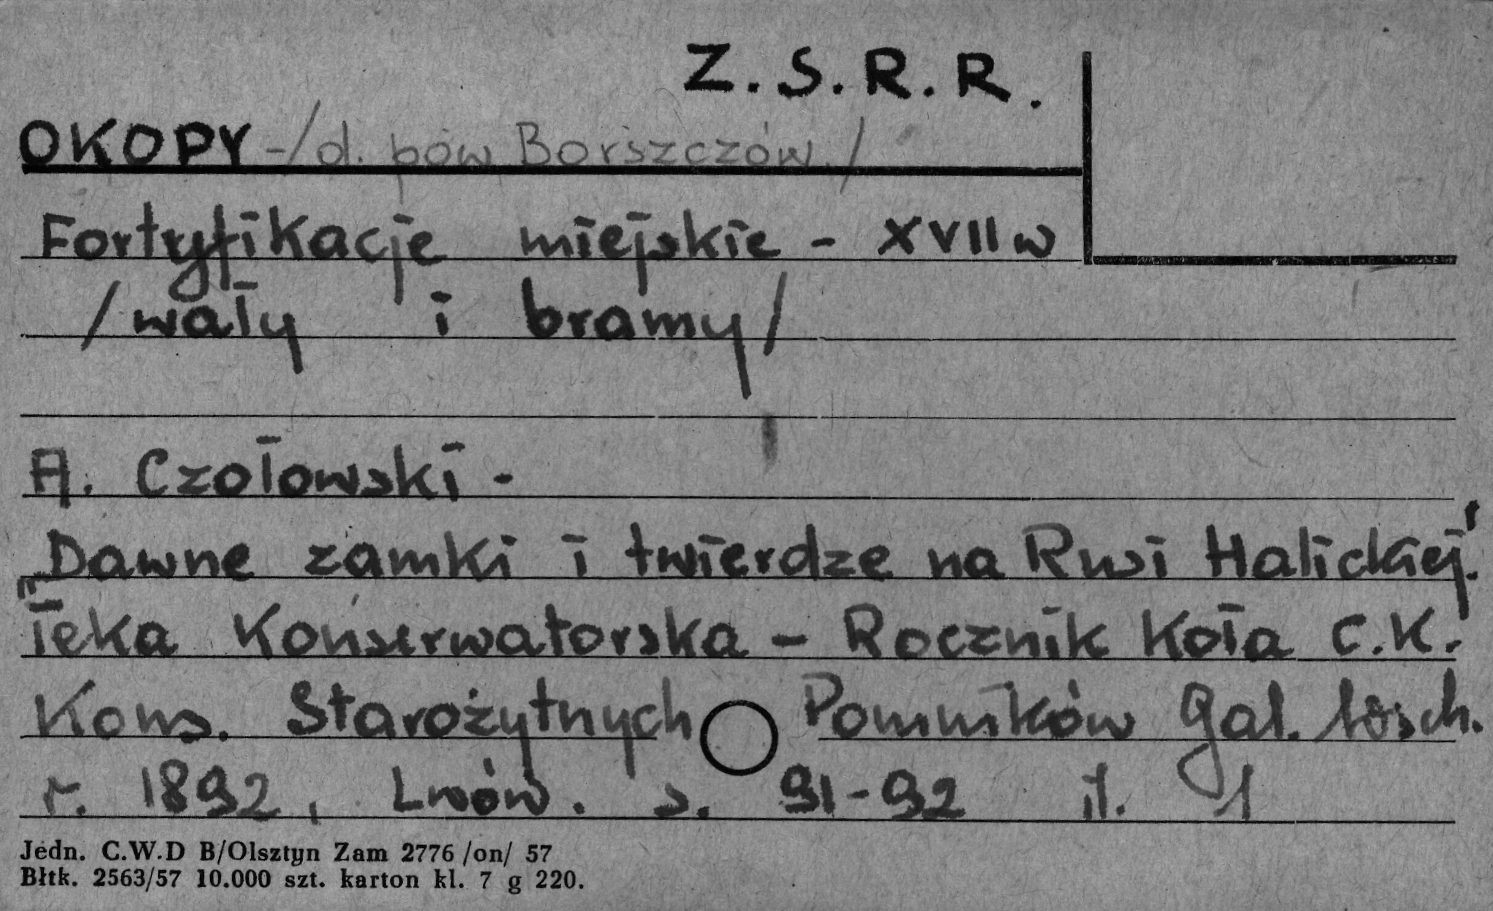 Z.S.R.R.
OKOPY -/d. pow Borszczów./
Fortyfikacje miejskie - XVII w
/wały i bramy/
A. Czołowski -
Dawne zamki i twierdze na Rusi Halickiej.'
"Teka Konserwatorska - Rocznik Koła C.K.
Kons. Starożytnych Pomników Gal. Wsch.
r. 1892, Lwów. s. 91-92 il. 1
Jedn. C.W.D B/Olsztyn Zam 2776 /on/ 57
Błtk. 2563/57 10.000 szt. karton kl. 7 g 220.